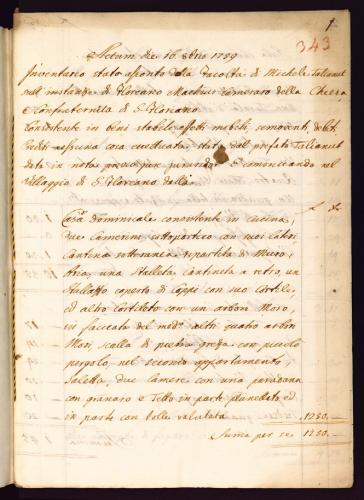 1
343
Actum die 16 Xbris 1759
Inventario stato assonto della Facoltà di Michele Talianut
nell'instanza di Floreano Machius Cameraro della Chiesa,
e Confraternità di S: Floreano.
Consistente in beni stabili, effetti mobili, semoventi, debiti,
crediti nessuna cosa eccettuata, stata dal prefato Talianut
data in nota, previo suo giurando S. cominciando nel
Villaggio di S: Floreano dalla
Casa Dominicale consistente in cucina,
due Camerini, sottoportico con suoi Catari
Cantina sotteranea ripartita di Muro,
Aria, una Stalleta, Cantineta a retro, un
Stallaffo coperto di Coppi con suo Cortile,
ed altro Cortileto con un arbori Moro,
in facciata del med.o altri quatro arbori
Mori, scalla di pietra greza con picciol
pergolo, nel secondo appartamento,
Saletta, due Camere con una paradana
con granaro e Tetto in parte planellato ed
in parte con tolle valutata
1250. __
Suma per se 1250. __